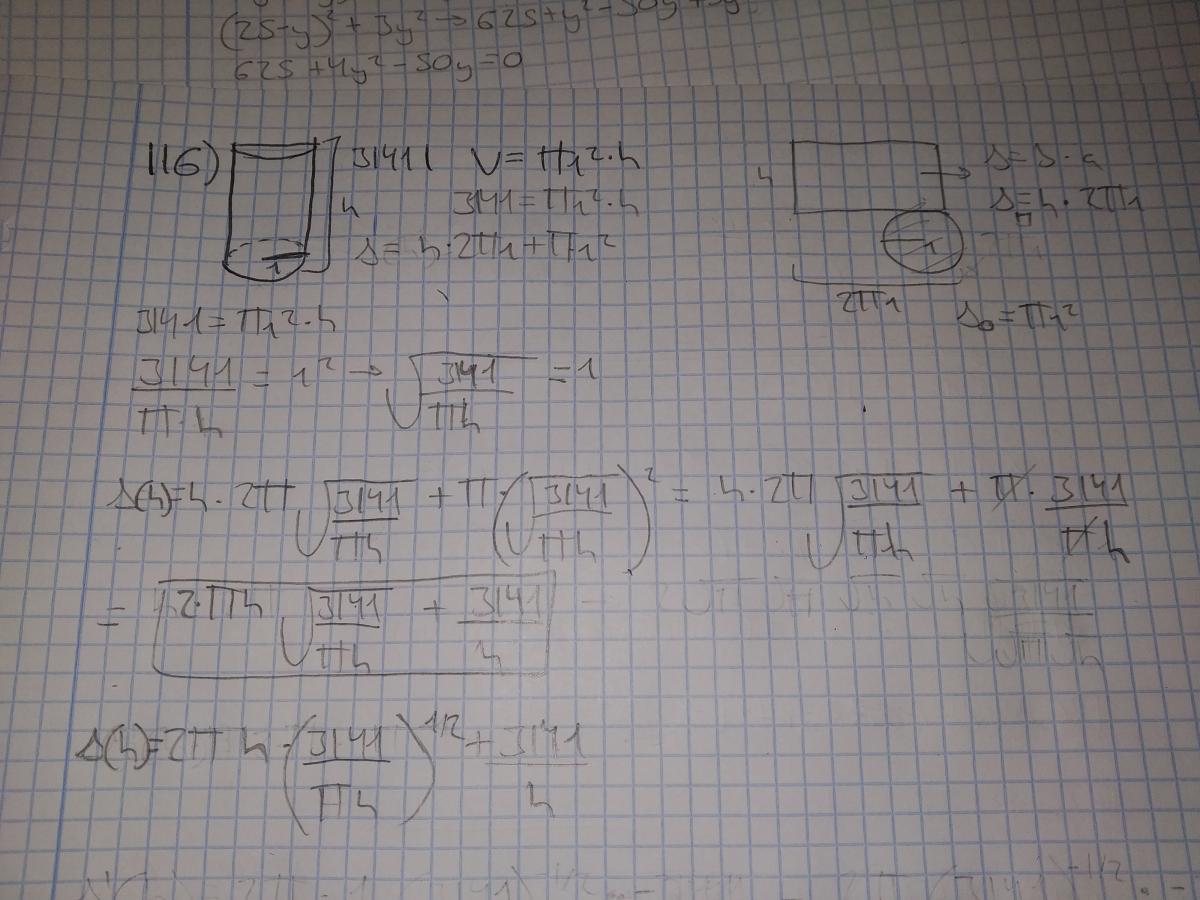 (25-y)² + 3y² → 625+y²-50y+3y²
625+4y²-50y=0
116) 3141 l V = πr²·h
h 3141 = πr²·h
r S = h·2πr+πr²
h S = b·a
S□ = h·2πr
r
2πr S₀ = πr²
3141 = πr²·h
3141/(π·h) = r² → √(3141/(πh)) = r
S(h)=h·2π √(3141/(πh)) + π·(√(3141/(πh)))² = h·2π √(3141/(πh)) + π·3141/(πh)
= 2·πh √(3141/(πh)) + 3141/h
S(h)=2πh·(3141/(πh))^1/2 + 3141/h